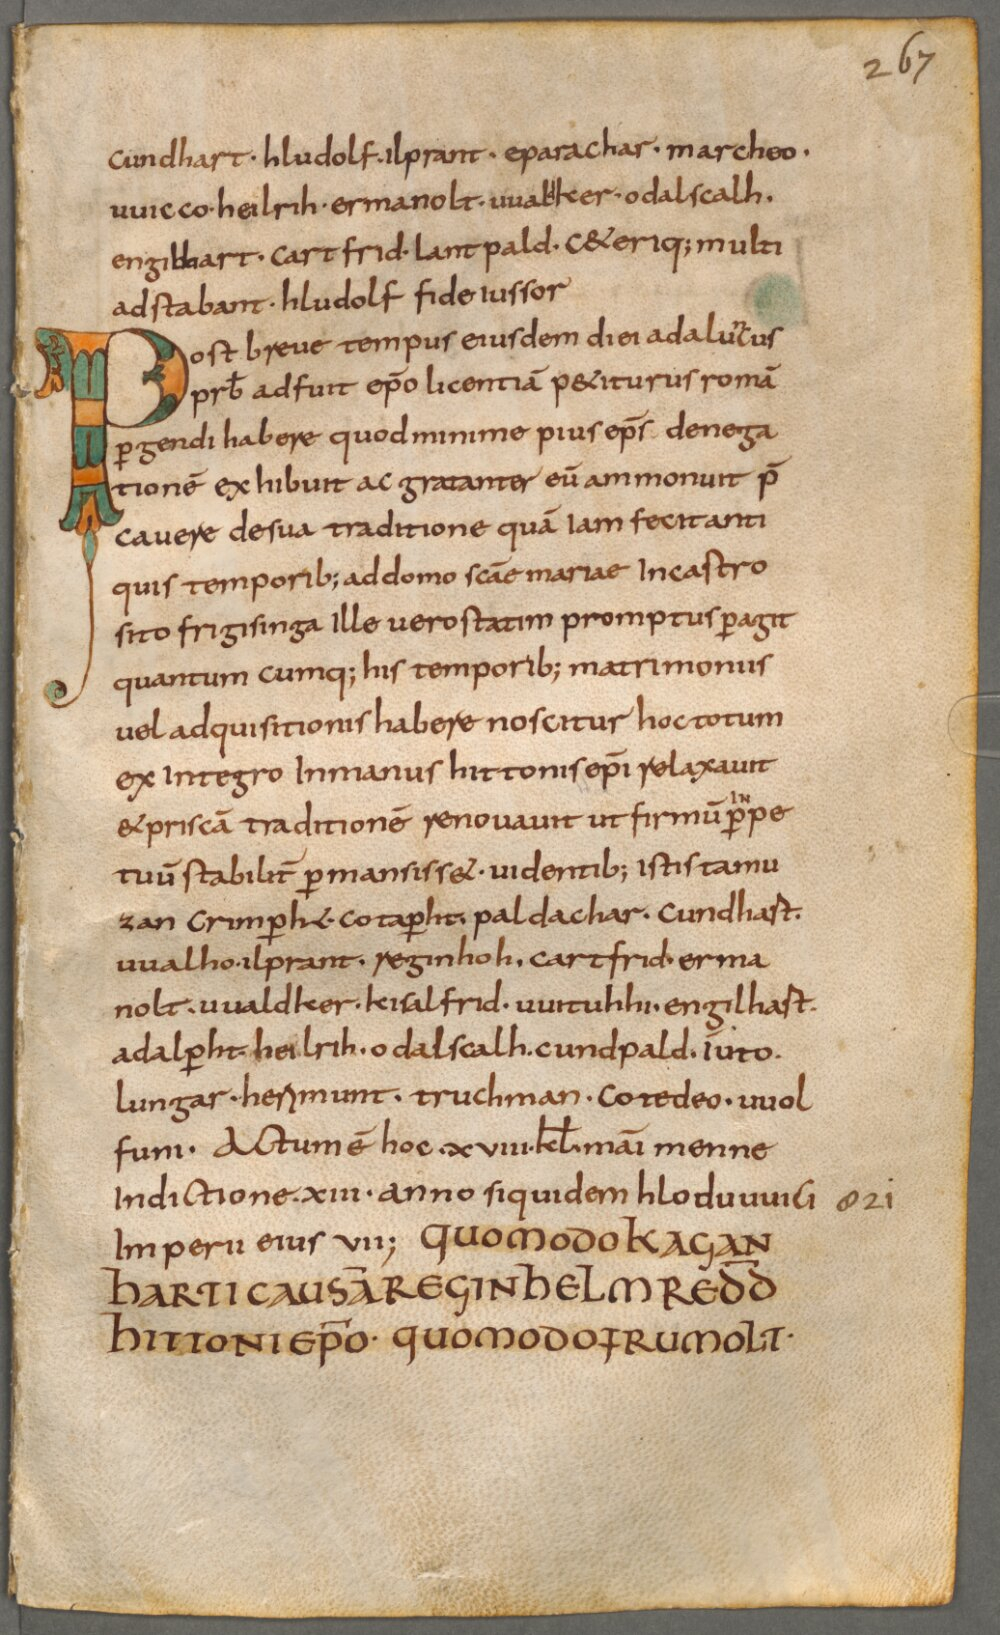 267
cundhart · hludolf · ilprant · eparachar · marcheo ·
uuicco · heilrih · ermanolt · uualdker · odalscalh ·
engilhart · cartfrid · lantpald · c&eriq; multi
adstabant · hludolf fideiussor
Post breue tempus eiusdem diei adalu
prƀ adfuit ep̄o licentiā p&iturus romā
ꝑgendi habere quod minime pius ep̄s denega
tionē exhibuit ac gratanter eū ammonuit p̄
cauere de sua traditione quā iam fecit anti
quis temporib; ad domo scāe mariae In castro
sito frigisinga Ille uero statim promptus ꝑagit
quantum cumq; his temporib; matrimoniis
uel adquisitionis habere noscitur hoc totum
ex Integro In manus hittonis ep̄i relaxauit
& priscā traditionē renouauit ut firmū IN ꝑpe
tuū stabilit̄ ꝑmansiss& · uidentib; istis tamu
zan crimꝑh& · cotaꝑht · paldachar · cundhart ·
uualho · ilprant · reginhoh · cartfrid · erma
nolt · uualdker · kisalfrid · uuituhhi · engilhart ·
adalꝑht · heilrih · odalscalh · cundpald · iuto ·
lungar · herimunt · truchman · cotedeo · uuol
funi · Actum ē hoc · xviii · kł · māi menne
Indictione · xiii · anno siquidem hloduuuici 821
Imperii eius vii; QUOMODO KAGAN
HARTI CAUSĀ REGINHELM REDD̄
HITTONI EP̄O · QUOMODO FRUMOLT ·